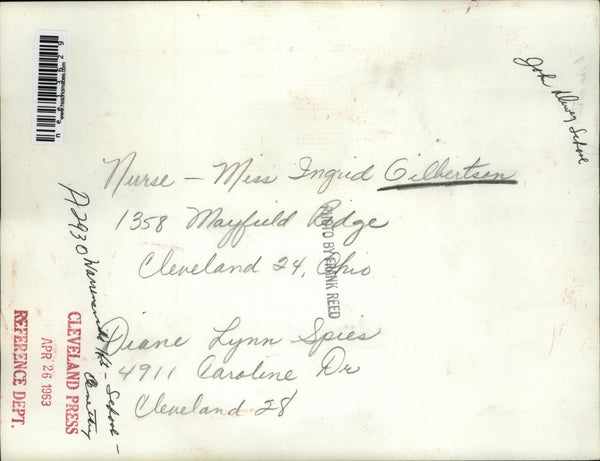 John Dewey School
Nurse - Miss Ingrid Gilbertson
1358 Mayfield Ridge
Cleveland 24, Ohio
PHOTO BY FRANK REED
Diane Lynn Spies
4911 Caroline Dr
Cleveland 28
A2930 Warrensville Hts - School -
Elementary
CLEVELAND PRESS
APR 26 1963
REFERENCE DEPT.